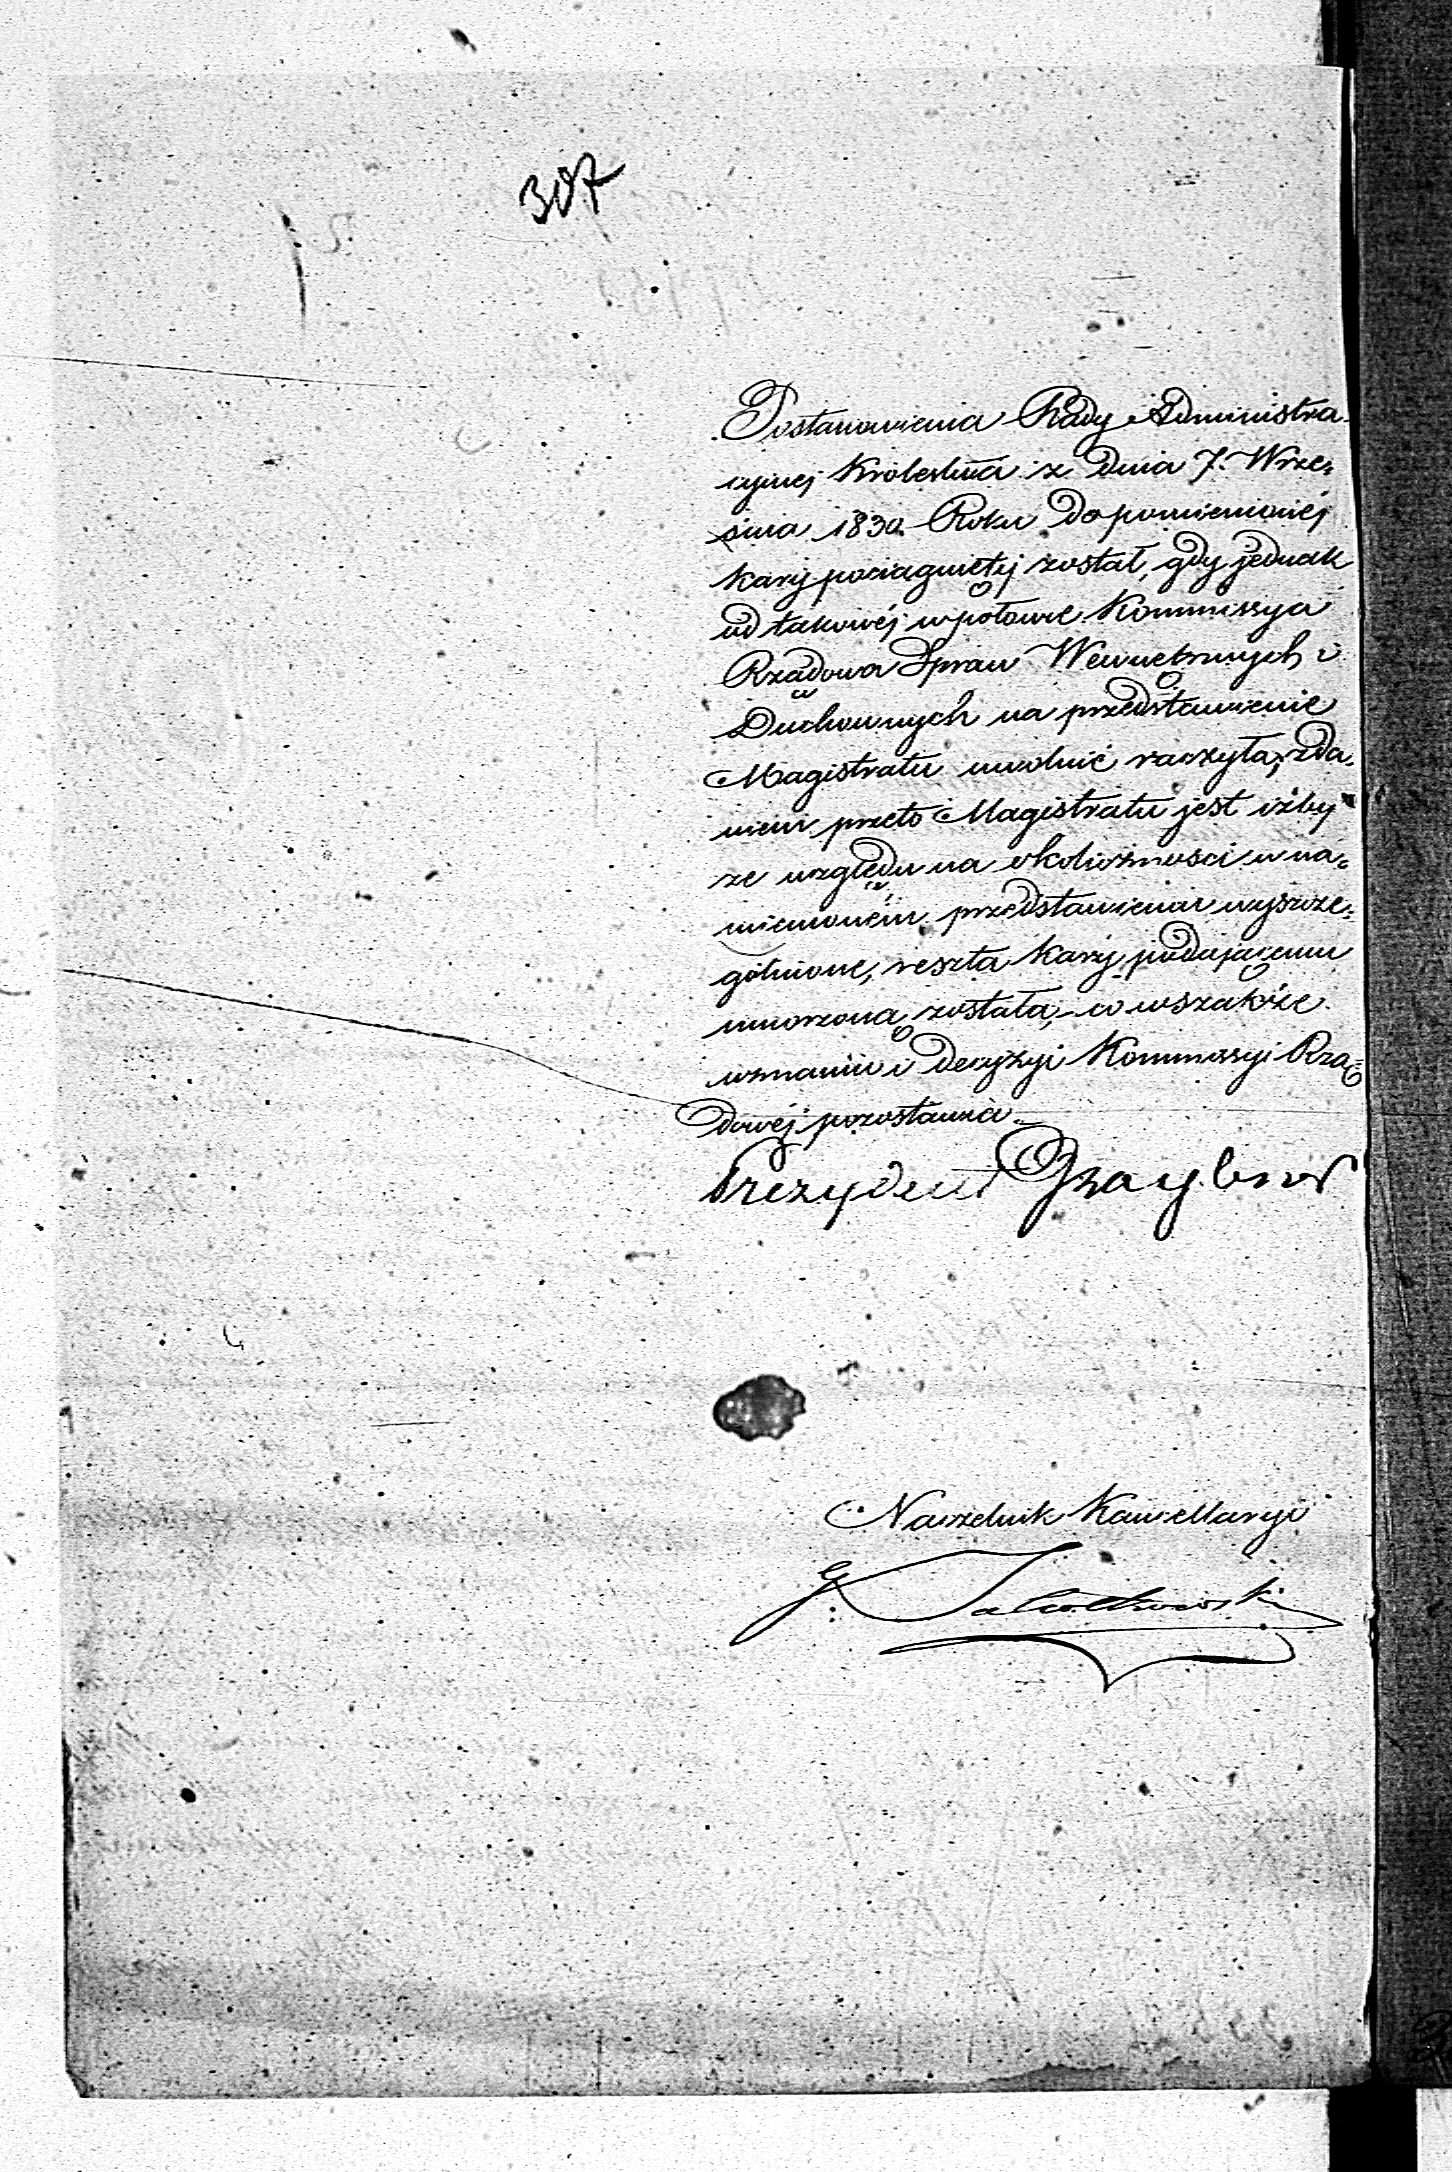 307
Postanowienia Rady Administra-
cyjnej Krolestwa z dnia 7. Wrze-
śnia 1830 Roku do pomienionéj
kary pociągnietej został, gdy jednak
od takowéj w połowie Kommissya
Rządowa Spraw Wewnętrznych i
Duchownych na przedstawienie
Magistratu uwolnić raczyła, zda-
niem przeto Magistratu jest iżby
ze względu na okoliczności w na-
mienioném przedstawieniu wyszcze-
gólnione, reszta kary podającemu
umorzoną została, co wszakże
uznaniu i decyzyi Kommissyi Rzą-
dowéj pozostawia.
Prezydent
Naczelnik Kancellaryi
G.